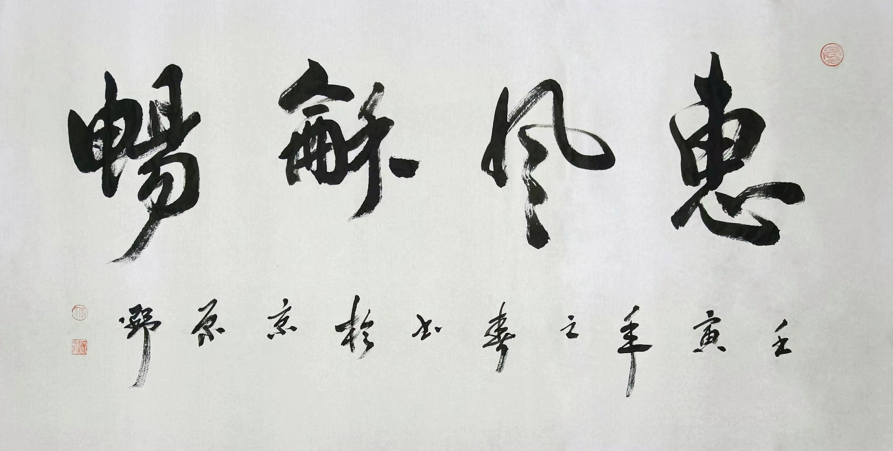 惠風龢暢
壬寅年之春書於京原野